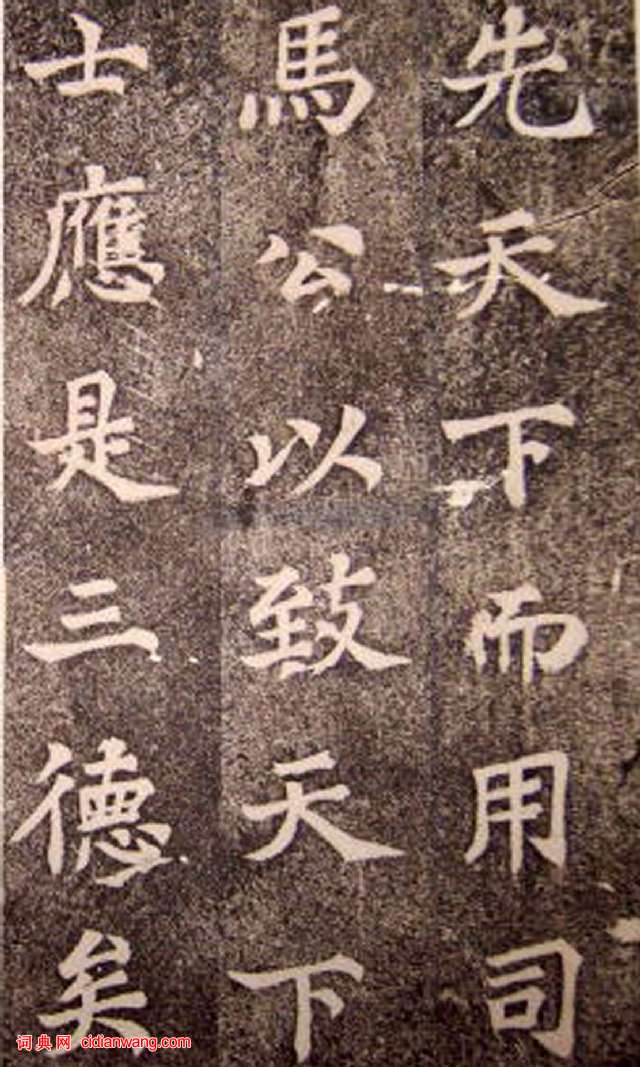 先天下而用司
馬公以致天下
士應是三德矣
词典网 cidianwang.com